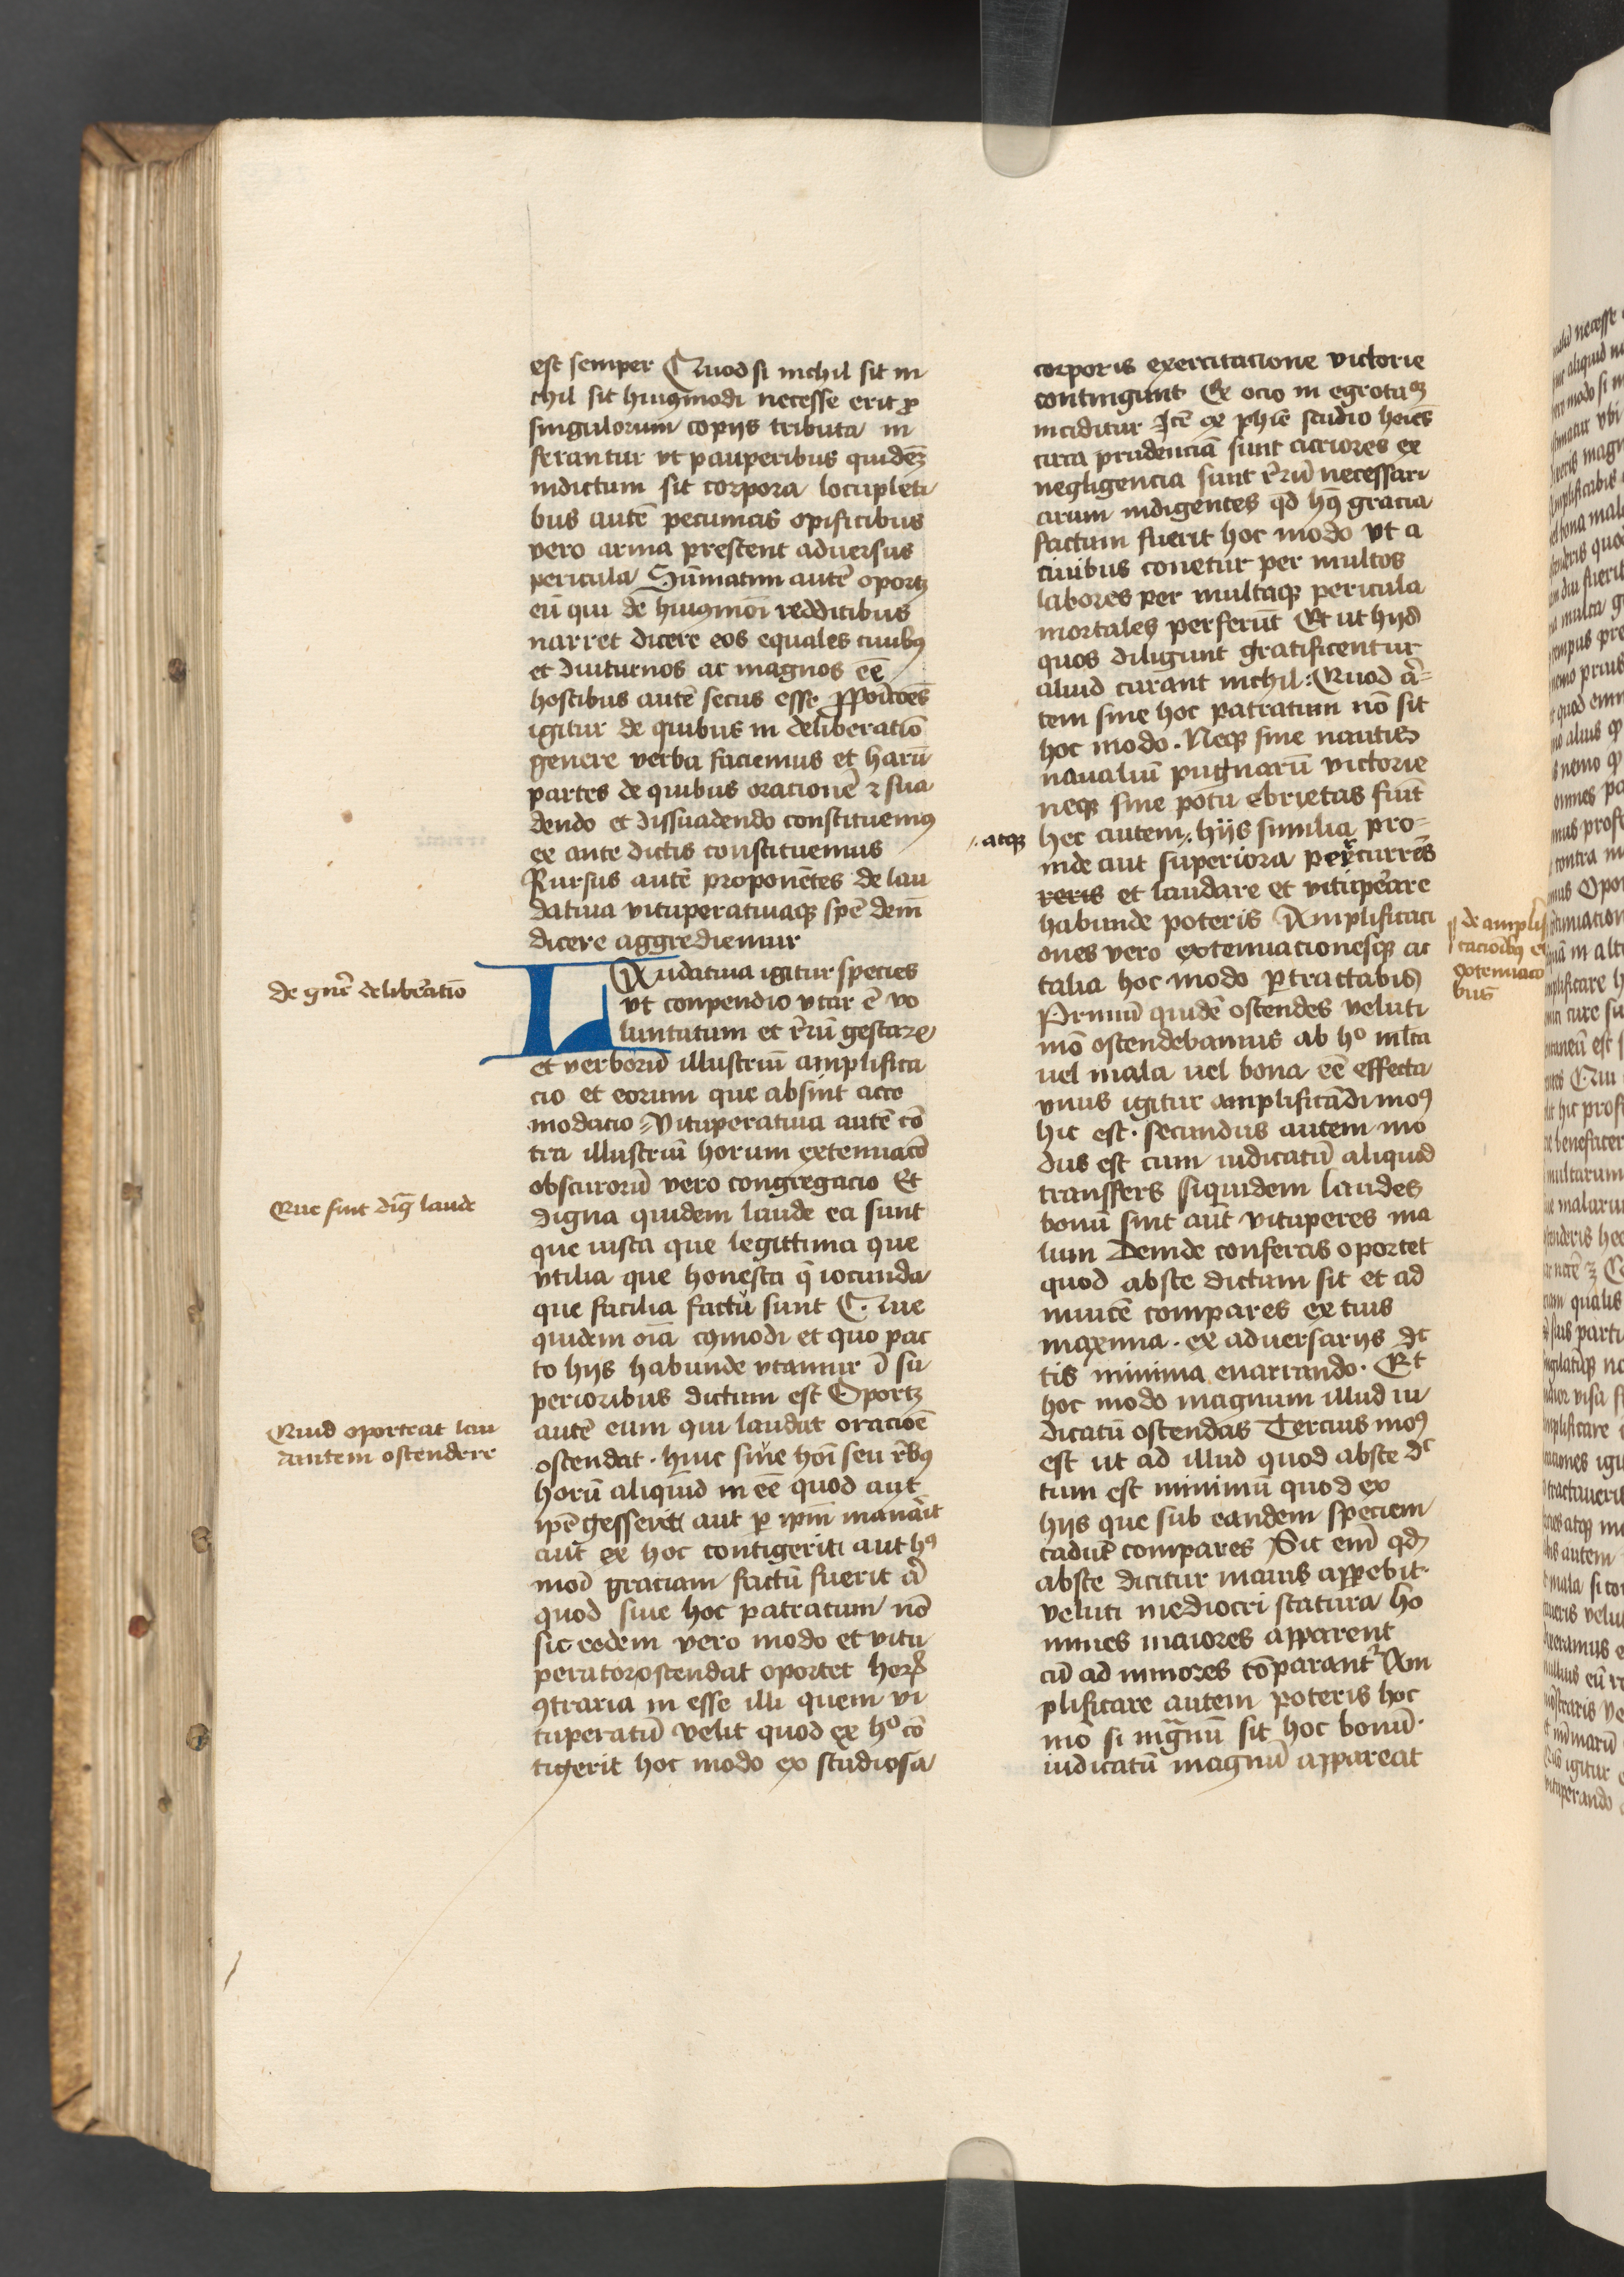 est semper Quod si nichil sit ni
chil sit huiꝰmodi necesse erit ꝓ
singulorum copijs tributa in
ferantur vt pauperibus quidēꝫ
indictum sit corpora locupleti
bus autē pecunias opificibus
vero arma prestent aduersus
pericula Sūmatim autē oportꝫ
eū qui de huiꝰmōi redditibus
narret dicere eos equales ciuibꝰ
et diuturnos ac magnos eē
hostibus autē secus esse ꝓpōicōes
igitur de quibus in deliberatiō
genere verba faciemus et harū
partes de quibus oracionē ⁊ sua
dendo et dissuadendo constituemꝰ
ex ante dictis constituemus
Rursus autē proponētes de lau
datiua vituperatiuaqꝫ spē dem̄
dicere aggrediemur
de gnẽ delibẽatiō
LAudatiua igitur species
vt conpendio vtar ē vo
luntatum et rerū gestarẽ
et verborū illustriū amplifica
cio et eorum que absint acco
modacio Vituperatiua autē cō
tra illustriū horum extenuacō
obscurorū vero congregacio Et
Que sint dig̃ laude
digna quidem laude ea sunt
que iusta que legittima que
vtilia que honesta q̄ iocunda
que facilia factu sunt Que
quidem oīa cꝰmodi et quo pac
to hijs habunde vtamur ī su
perioribus dictum est Oportꝫ
Quid oporteat lau
dantem ostendere
autē eum qui laudat oracioē
ostendat · huic siue hoī seu rebꝰ
horū aliquid in eē quod aut
ipē gesserit aut ꝑ ipm̄ manāit
aut ex hoc contigerit aut hꝰ
mōi graciam factū fuerit aī
quod sine hoc patratum nō
sit eodem vero modo et vitu
perator ostendat oportet horꝝ
ꝯtraria in esse illi quem vi
tuperatū velit quod ex hº cō
tigerit hoc modo ex studiosa
corporis exercitacione victorie
contingunt Ex ocio in egrotaōꝫ
inciditur Itē ex phīe studio hoīes
circa prudenciā sunt acriores ex
negligencia sunt rerū necessari
arum indigentes qd hꝰ gracia
factum fuerit hoc modo vt a
ciuibus conetur per multos
labores per multaqꝫ pericula
mortales perferūt Et ut hijd
quos diligunt gratificentur
aliud curant nichil : Quod a=
tem sine hoc patratum nō sit
hoc modo . Neqꝫ sine nautis
naualiū pugnarū victorie
neqꝫ sine potu ebrietas fiūt
·/. atqꝫ
hec autem ·/. hijs similia pro=
inde aut superiora percurrēs
reris et laudare et vitupeare
habunde poteris Amplificaci
¶ de amplifi
cacioibꝰ et
extenuacō
bus
ones vero extenuacionesqꝫ ac
talia hoc modo ꝑtractabis
Primū quidē ostendes veluti
mō ostendebamus ab hº mlta
uel mala uel bona eē effecta
vnus igitur amplificādi moꝰ
hic est . secundus autem mo
dus est cum iudicatū aliquod
transffers siquidem laudes
bonū sint aut vituperes ma
lum Deinde conferas oportet
quod abste dictum sit et ad
inuicē compares ex tuis
maxima . ex aduersarijs dc
tis minima enarrando . Et
hoc modo magnum illud iu
dicatū ostendas Tercius moꝰ
est ut ad illud quod abste dc
tum est minimū quod ex
hijs que sub eandem speciem
cadūt compares Sic em̄ qd
abste dicitur maius apꝑebit .
veluti mediocri statura ho
mines maiores apparent
cū ad minores cōparant᷑ Am
plificare autem poteris hoc
mō si mg̃nū sit hoc bonū .
iudicatū magnū appareat